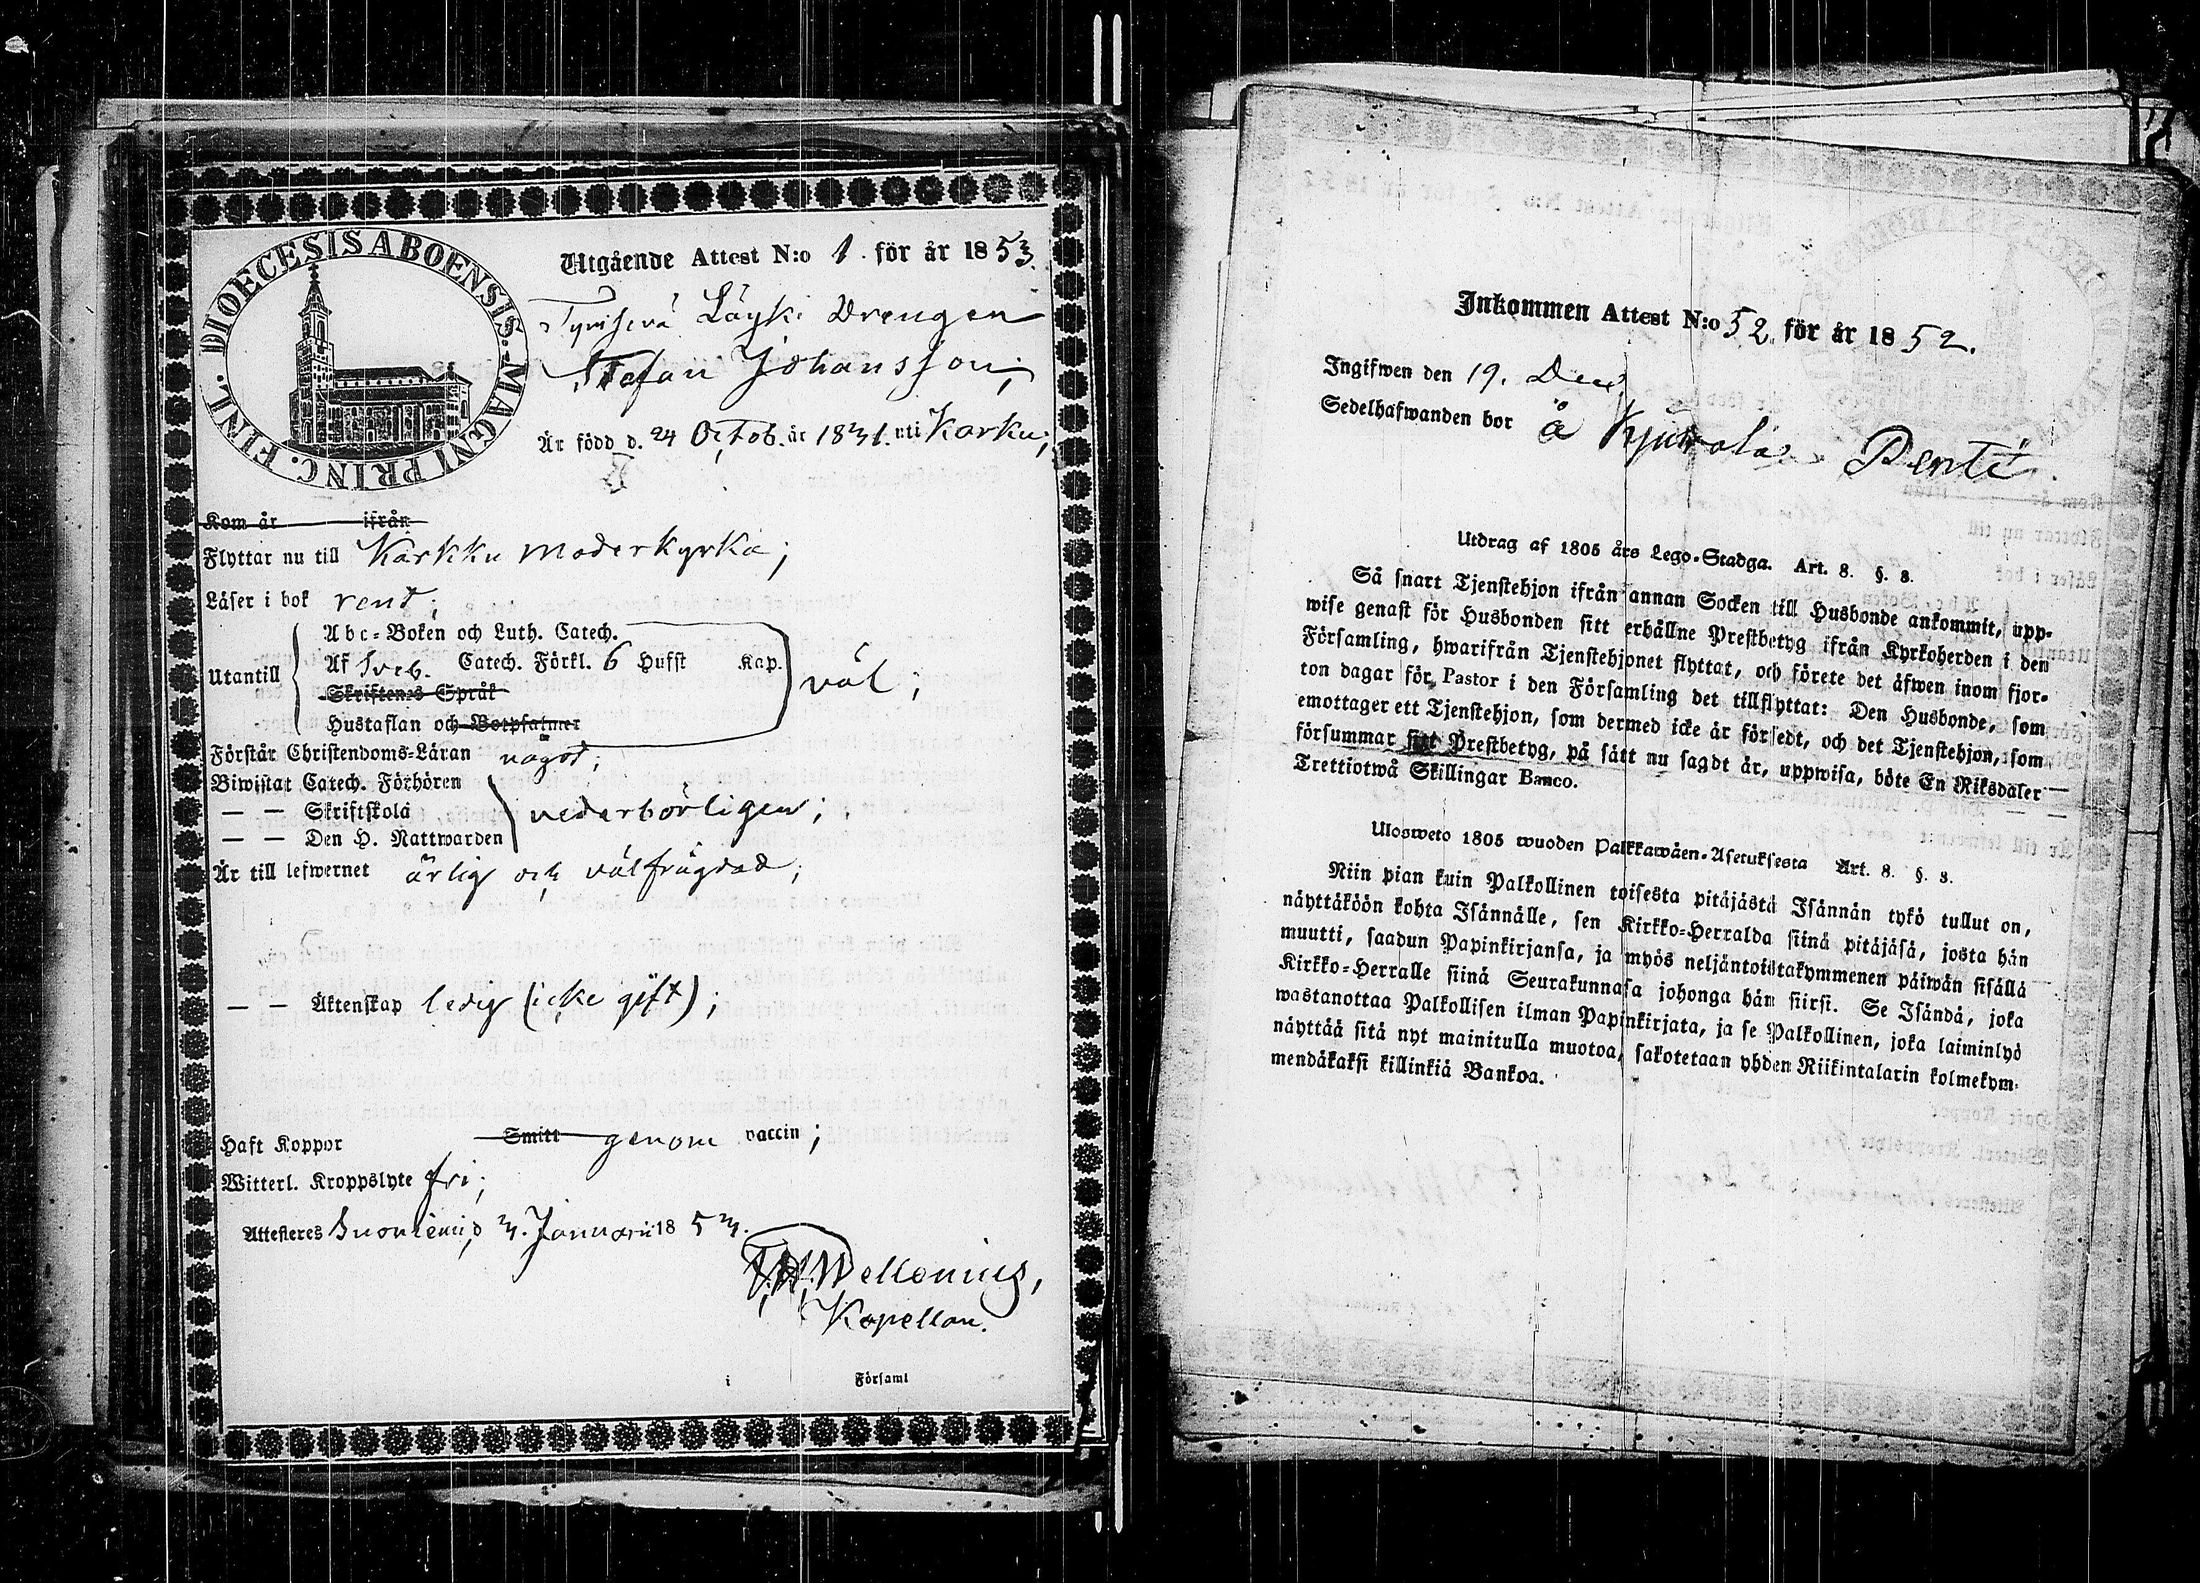 DIOECESIS ABOENSIS. MAGNI PRINC. FINL.
Utgående Attest N:o 1. för år 1853.
Tyrisevä Läyki Drengen
Stefan Johansson;
Är född d. 24 Octob. år 1831. uti Karku;
Kom år ifrån
Flyttar nu till Karkku moderkyrka;
Läser i bok rent;
Abc-Boken och Luth. Catech.
Utantill Af Sveb. Catech. Förkl. 6 Hufst Kap. väl;
Skriftenes Språk
Hustaflan och Botpsalmer
Förstår Christendoms-Läran något;
Biwistat Catech. Förhören
— — Skriftskola vederbörligen;
— — Den H. Nattwarden
Är till lefwernet ärlig och välfrägdad;
— — Äktenskap ledig (icke gift);
Haft Koppor Smitt genom vaccin;
Witterl. Kroppslyte fri;
Attesteres Suoniemi d 3. Januarii 1853.
Wellenius,
Kapellan.
i Församl
Inkommen Attest N:o 52. för år 1852.
Ingifwen den 19. Dec
Sedelhafwanden bor å Kjurala Penti.
Utdrag af 1805 års Lego-Stadga. Art. 8. §. 8.
Så snart Tjenstehjon ifrån annan Socken till Husbonde ankommit, upp-
wise genast för Husbonden sitt erhållne Prestbetyg ifrån Kyrkoherden i den
Församling, hwarifrån Tjenstehjonet flyttat, och förete det äfwen inom fjor-
ton dagar för Pastor i den Församling det tillflyttat: Den Husbonde, som
emottager ett Tjenstehjon, som dermed icke är försedt, och det Tjenstehjon, som
försummar sitt Prestbetyg, på sätt nu sagdt är, uppwisa, böte En Riksdaler
Trettiotwå Skillingar Banco.
Ulosweto 1805 wuoden Palkkawäen-Asetuksesta Art. 8. §. 8.
Niin pian kuin Palkollinen toisesta pitäjästä Isännän tykö tullut on,
näyttäköön kohta Isännälle, sen Kirkko-Herralda siinä pitäjäsä, josta hän
muutti, saadun Papinkirjansa, ja myös neljäntoistakymmenen päiwän sisällä
Kirkko-Herralle siinä Seurakunnasa johonga hän siirsi. Se Isändä, joka
wastanottaa Palkollisen ilman Papinkirjata, ja se Palkollinen, joka laiminlyö
näyttää sitä nyt mainitulla muotoa, sakotetaan yhden Riikintalarin kolmekym-
mendäkaksi killinkiä Bankoa.